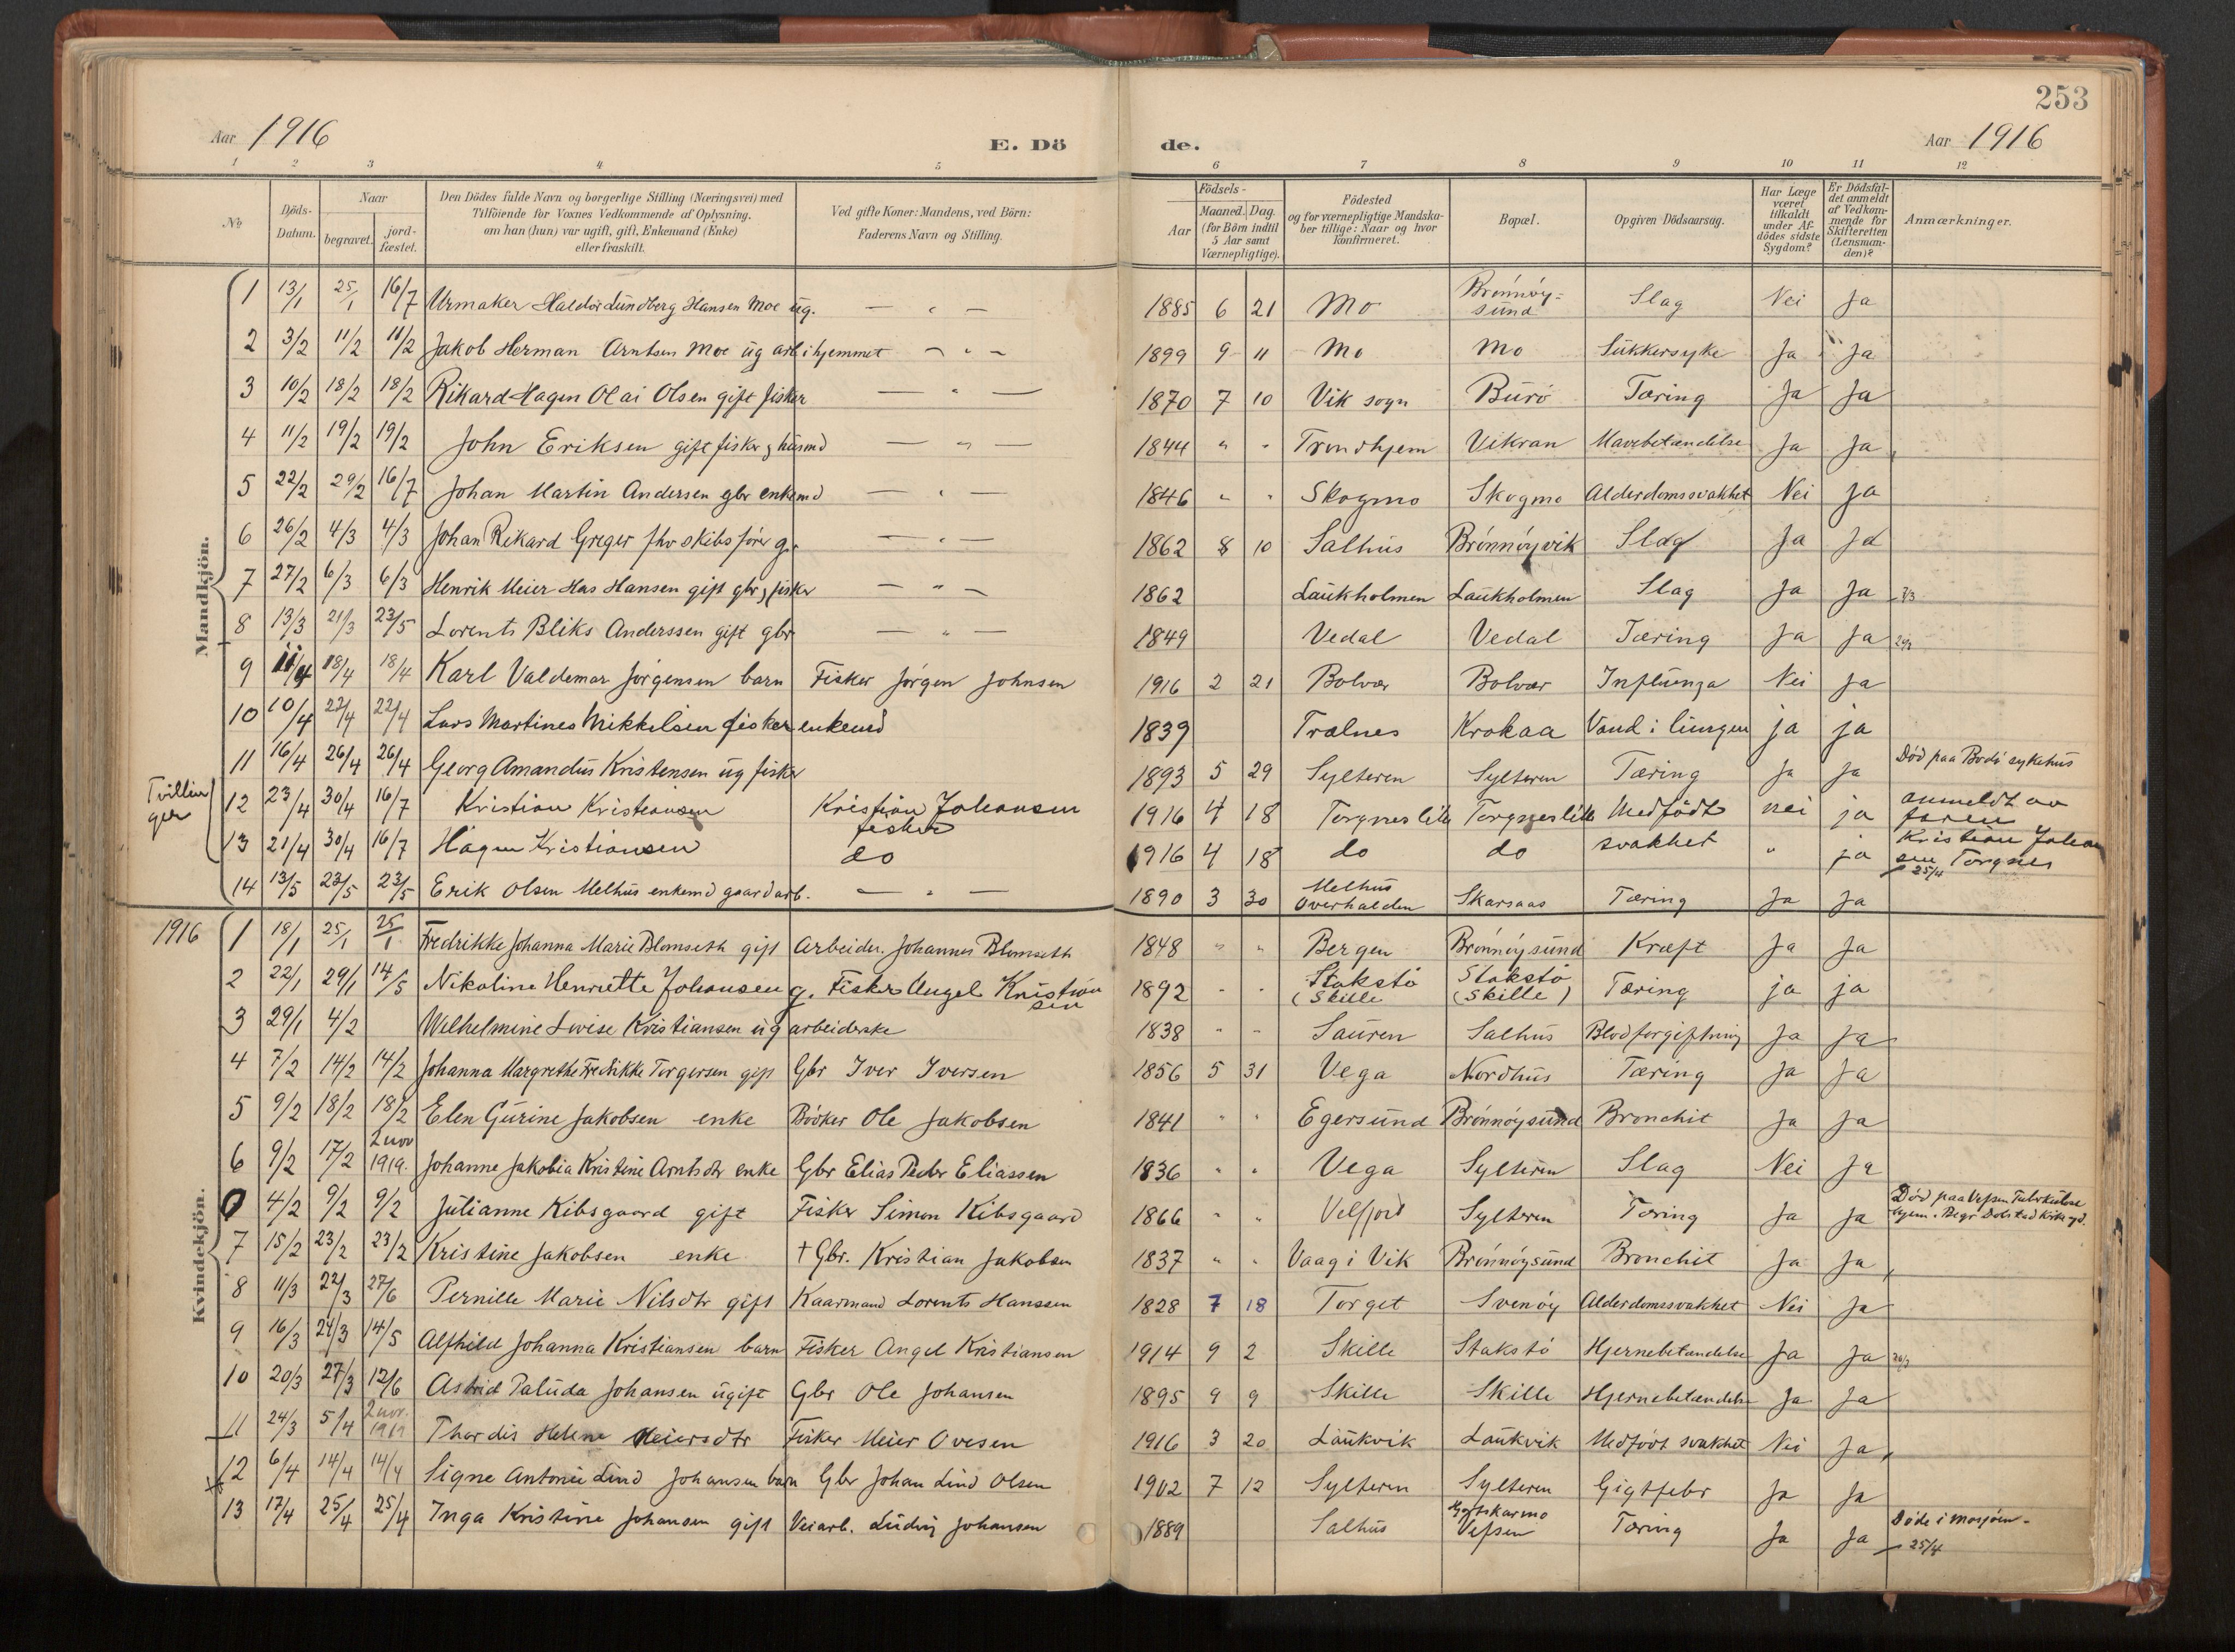 253
Aar 1916
E. Dö
de.
Aar 1916
1 2 3 4 5 6 7 8 9 10 11 12
№
Döds-Datum.
Naar
begravet.
jord-fæstet.
Den Dödes fulde Navn og borgerlige Stilling (Næringsvei) med
Tilföiende for Voxnes Vedkommende af Oplysning,
om han (hun) var ugift, gift, Enkemand (Enke)
eller fraskilt.
Ved gifte Koner: Mandens, ved Börn:
Faderens Navn og Stilling.
Födsels-
Aar
Maaned. Dag.
(for Börn indtil
5 Aar samt
Værnepligtige).
Födested
og for værnepligtige Mandska-
ber tillige: Naar og hvor
konfirmeret.
Bopæl.
Opgiven Dödsaarsag.
Har Læge
været
tilkaldt
under Af-
dödes sidste
Sygdom?
Er Dödsfal-
det anmeldt
af Vedkom-
mende for
Skifteretten
(Lensman-
den)?
Anmærkninger.
Mandkjön.
1 13/1 25/1 16/7 Urmaker Haldor Lundberg Hansen Moe ug. — " — 1885 6 21 Mo Brönnöy-sund Slag Nei Ja
2 3/2 11/2 11/2 Jakob Herman Arntsen Moe ug arb i hjemmet — " — 1899 9 11 Mo Mo Sukkersyke Ja Ja
3 10/2 18/2 18/2 Rikard Hagen Olai Olsen gift fisker — " — 1870 7 10 Vik sogn Burö Tæring Ja Ja
4 11/2 19/2 19/2 John Eriksen gift fisker & husmd — " — 1844 " " Trondhjem Vikran Mavebetændelse Ja Ja
5 22/2 29/2 16/7 Johan Martin Andersen gbr enkemd — " — 1846 " " Skogmo Skogmo Alderdomssvakhet Nei Ja
6 26/2 4/3 4/3 Johan Rikard Greger fhv skibsförer g. — " — 1862 8 10 Salhus Brönnöyvik Slag Ja Ja
7 27/2 6/3 6/3 Henrik Meier Has Hansen gift gbr & fisker — " — 1862 Laukholmen Laukholmen Slag Ja Ja 7/3
8 13/3 21/3 23/5 Lorents Bliks Anderssen gift gbr — " — 1849 Vedal Vedal Tæring Ja Ja
9 11/4 18/4 18/4 Karl Valdemar Jörgensen barn Fisker Jörgen Johnsen 1916 2 21 Bolvær Bolvær Influenza Nei Ja
10 10/4 22/4 22/4 Lars Martines Mikkelsen fisker enkemd 1839 Trælnes Krokaa Vand i lungen ja ja
11 16/4 26/4 26/4 Georg Amandus Kristensen ug fisker 1893 5 29 Sylteren Sylteren Tæring Ja Ja Död paa Bodö sykehus
Tvillinger
12 23/4 30/4 16/7 Kristian Kristiansen Kristian Johansen fisker 1916 4 18 Torgneslia Torgneslia Medfödt nei ja anmeldt av faren
13 21/4 30/4 16/7 Hagen Kristiansen do 1916 4 18 do do svakhet " ja Kristian Johansen Torgnes 25/4
14 13/5 23/5 23/5 Erik Olsen Melhus enkemd gaardarb. — " — 1890 3 30 Melhus Overhalden Skarsaas Tæring Ja Ja
1916
Kvindekjön.
1 18/1 25/1 25/1 Fredrikke Johanna Marie Blomseth gift Arbeider. Johannes Blomseth 1848 " " Bergen Brönnöysund Kræft Ja Ja
2 22/1 29/1 14/5 Nikoline Henriette Johansen g. Fisker Angel Kristiansen 1892 " " Stakstö (Skille Stakstö (Skille) Tæring ja ja
3 29/1 4/2 Wilhelmine Lovise Kristiansen ug arbeiderske 1838 " " Sauren Salhus Blodforgiftning Ja Ja
4 7/2 14/2 14/2 Johanna Margrethe Fredrikke Torgersen gift Gbr Iver Iversen 1856 5 31 Vega Nordhus Tæring Ja Ja
5 9/2 18/2 18/2 Elen Gurine Jakobsen enke Bödker Ole Jakobsen 1841 " " Egersund Brönnöysund Bronchit Ja Ja
6 9/2 17/2 2 nov 1919. Johanne Jakobia Kristine Arntsdtr enke Gbr Elias Peder Eliassen 1836 " " Vega Sylteren Slag Nei Ja
0 4/2 9/2 9/2 Julianne Kibsgaard gift Fisker Simon Kibsgaard 1866 " " Velfjord Sylteren Tæring Ja Ja Död paa Vefsen Tuberkulose hjem. Begr Dolstad Kirkegd.
7 15/2 23/2 23/2 Kristine Jakobsen enke † Gbr. Kristian Jakobsen 1837 " " Vaag i Vik Brönnöysund Bronchit Ja Ja
8 11/3 22/3 27/6 Pernille Marie Nilsdtr gift Kaarmand Lorents Hanssen 1828 7 18 Torget Svenöy Alderdomssvakhet Nei Ja
9 16/3 24/3 14/5 Alfhild Johanna Kristiansen barn Fisker Angel Kristiansen 1914 9 2 Skille Stakstö Hjernebetændelse Ja Ja
10 20/3 27/3 12/6 Astrid Paluda Johansen ugift Gbr Ole Johansen 1895 9 9 Skille Skille Hjernebetændelse Ja Ja
11 24/3 5/4 2 nov. 1919 Thordis Helene Meiersdtr Fisker Meier Ovesen 1916 3 20 Laukvik Laukvik Medfödt svakhet Nei Ja
12 6/4 14/4 14/4 Signe Antonie Lind Johansen barn Gbr Johan Lind Olsen 1902 7 12 Sylteren Sylteren Gigtfebr Ja Ja
13 17/4 25/4 25/4 Inga Kristine Johansen gift Veiarb. Ludvig Johansen 1889 Salhus Vefsen Tæring Ja Ja Döde i Mosjöen - 25/4